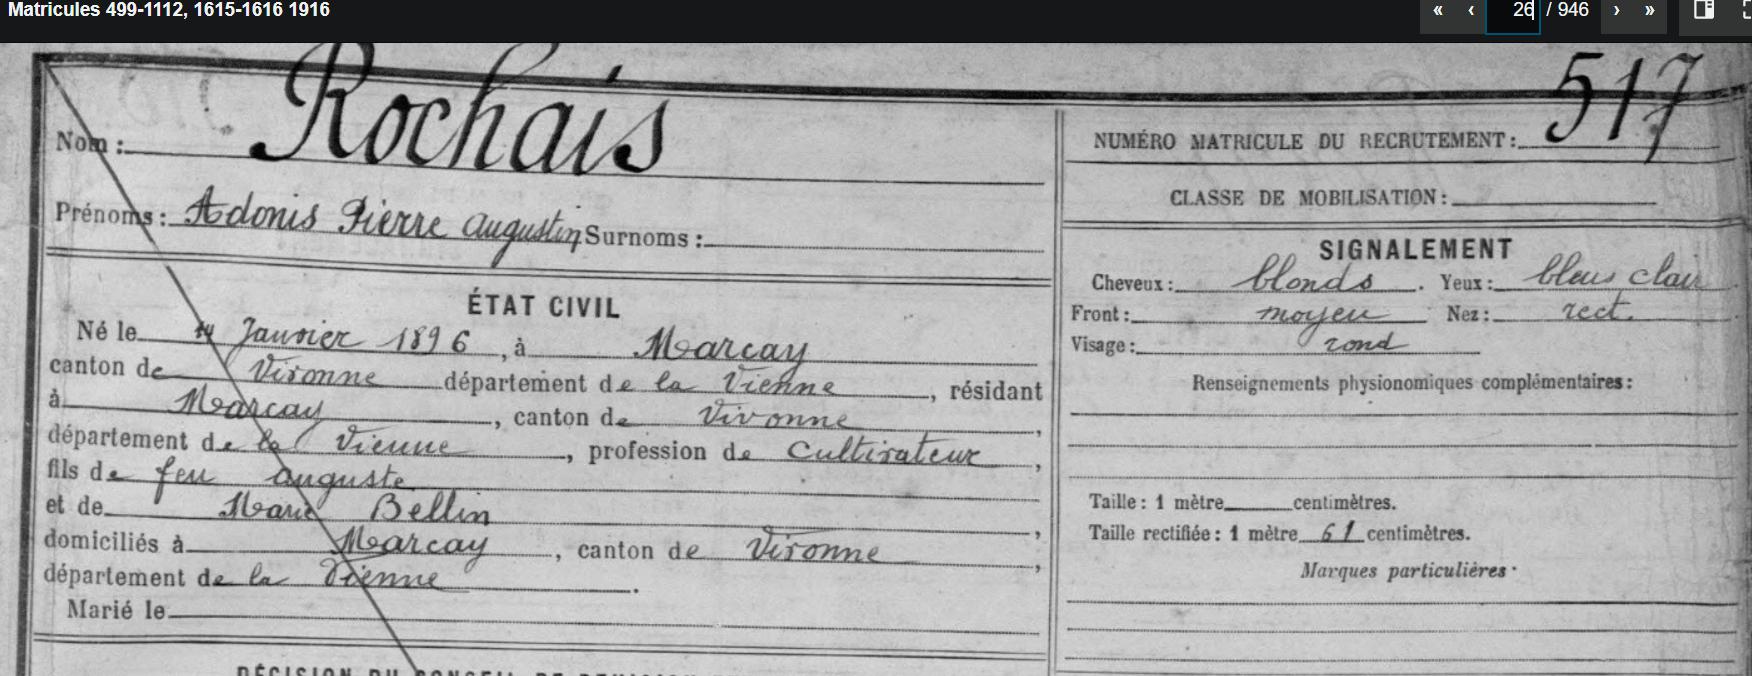 Matricules 499-1112, 1615-1616 1916
« ‹ 26 / 946 › »
Nom : Rochais
Prénoms : Adonis Pierre Augustin Surnoms :
ÉTAT CIVIL
Né le Janvier 1896, à Marcay
canton de Vivonne département de la Vienne, résidant
à Marcay, canton de Vivonne,
département de la Vienne, profession de Cultivateur,
fils de feu auguste
et de Marie Bellin,
domiciliés à Marcay, canton de Vivonne,
département de la Vienne.
Marié le
DÉCISION DU CONSEIL DE REVISION
NUMÉRO MATRICULE DU RECRUTEMENT : 517
CLASSE DE MOBILISATION :
SIGNALEMENT
Cheveux : blonds. Yeux : bleus clair
Front : moyen Nez : rect.
Visage : rond
Renseignements physionomiques complémentaires :
Taille : 1 mètre centimètres.
Taille rectifiée : 1 mètre 61 centimètres.
Marques particulières